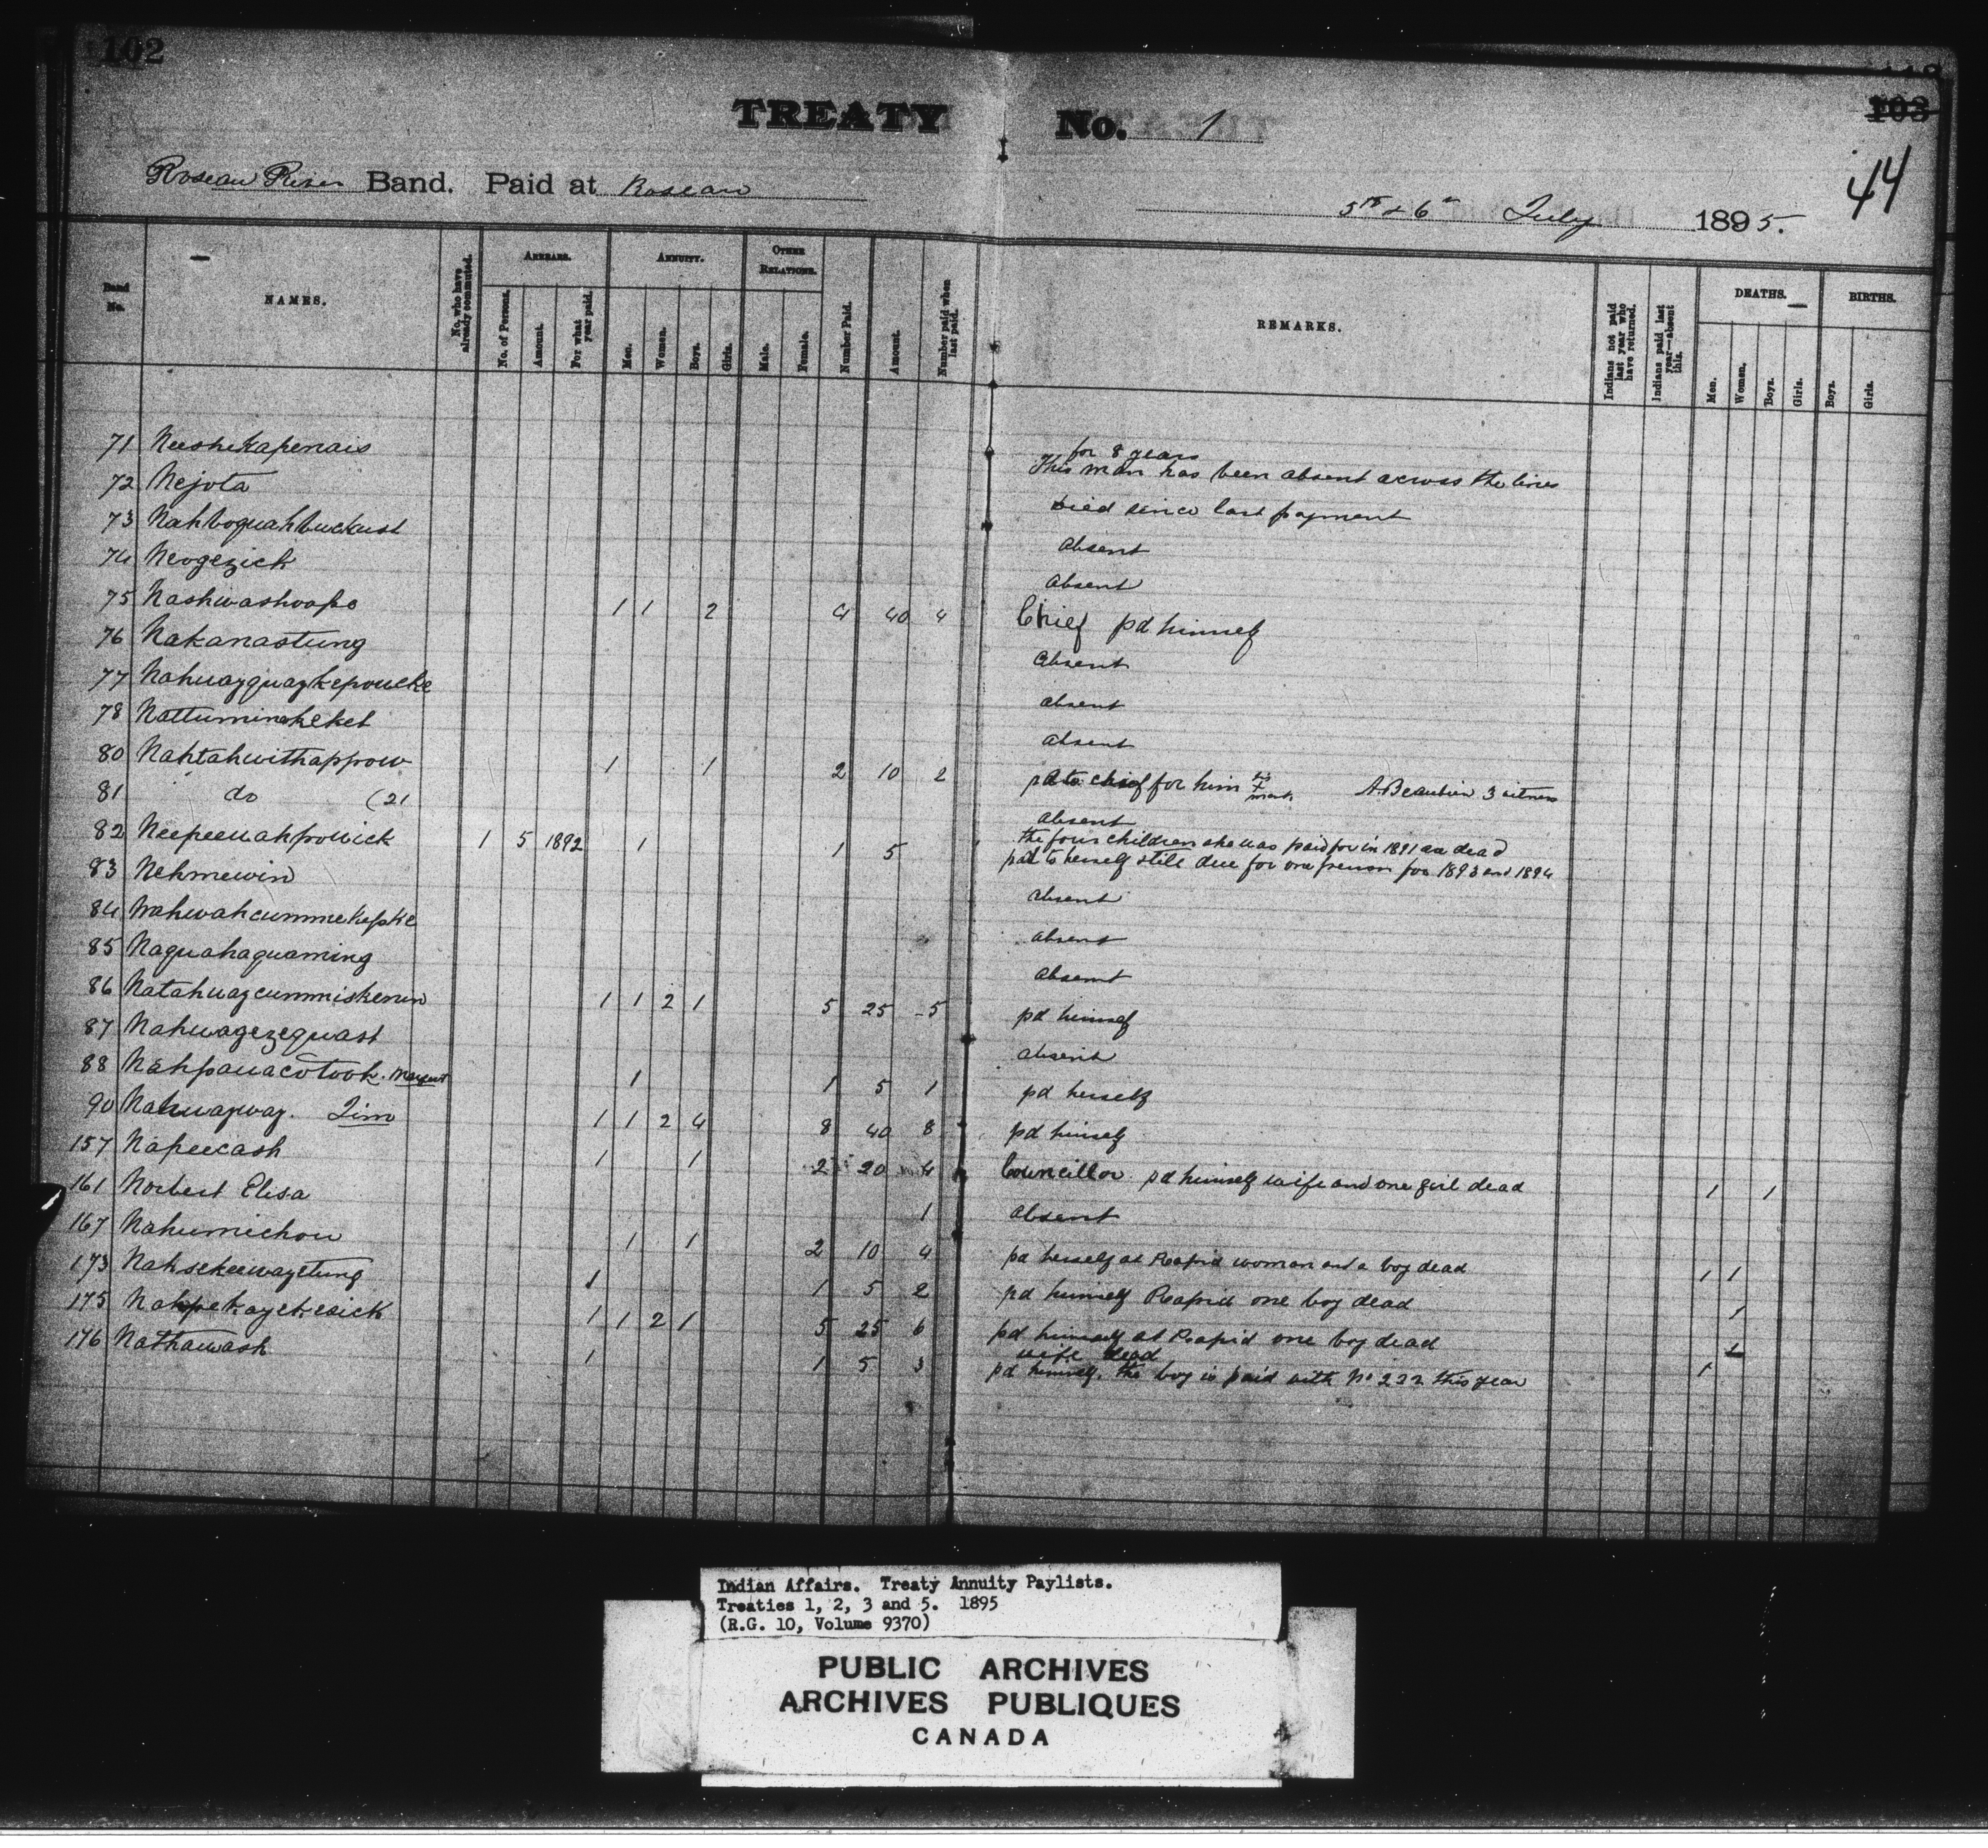 102
TREATY No. 1
103
44
Roseau River Band. Paid at Roseau
5th & 6th July 1895.
Band No.
NAMES.
No. who have already commuted.
ARREARS.
No. of Persons.
Amount.
For what year paid.
ANNUITY.
Men.
Women.
Boys.
Girls.
OTHER RELATIONS.
Male.
Female.
Number Paid.
Amount.
Number paid when last paid.
REMARKS.
Indians not paid last year who have returned.
Indians paid last year—absent this.
DEATHS.
Men.
Women.
Boys.
Girls.
BIRTHS.
Boys.
Girls.
71 Neeshekapenais for 8 years
This man has been absent across the lines
72 Nejota Died since last payment
73 Nahboquahbuckust absent
74 Neogezick absent
75 Nashwashoope 1 1 2 4 40 4 Chief pd himself
76 Nakanastung absent
77 Nahuayquaykepoucke absent
78 Nattuminahekel absent
80 Nahtahwithappow 1 1 2 10 2 pd to chief for him his x mark A. Beaubien witness
81 do (21 absent
82 Neepeewahpowick 1 5 1892 1 1 5 the four children she was paid for in 1891 are dead
pd to herself still due for one person for 1893 and 1894
83 Nehmewin absent
84 Nahwahcummekepke absent
85 Naquahaquaming absent
86 Natahuaycummiskenun 1 1 2 1 5 25 5 pd himself
87 Nahwagezequast absent
88 Nahpauacotook. Margaret 1 1 5 1 pd herself
90 Nahwayway. Jim 1 1 2 4 8 40 8 pd himself
157 Napeecash 1 1 2 20 4 Councillor pd himself wife and one girl dead 1 1
161 Norbert Elisa 1 absent
167 Nahumichou 1 1 2 10 4 pd herself at Rapid woman and a boy dead 1 1
173 Nahsekeewayetung 1 1 5 2 pd himself Rapid one boy dead 1
175 Nahpekaychesick 1 1 2 1 5 25 6 pd himself at Rapid one boy dead 1
176 Nathawash 1 1 5 3 wife dead
pd himself. the boy is paid with No 222 this year 1
Indian Affairs. Treaty Annuity Paylists.
Treaties 1, 2, 3 and 5. 1895
(R.G. 10, Volume 9370)
PUBLIC ARCHIVES
ARCHIVES PUBLIQUES
CANADA